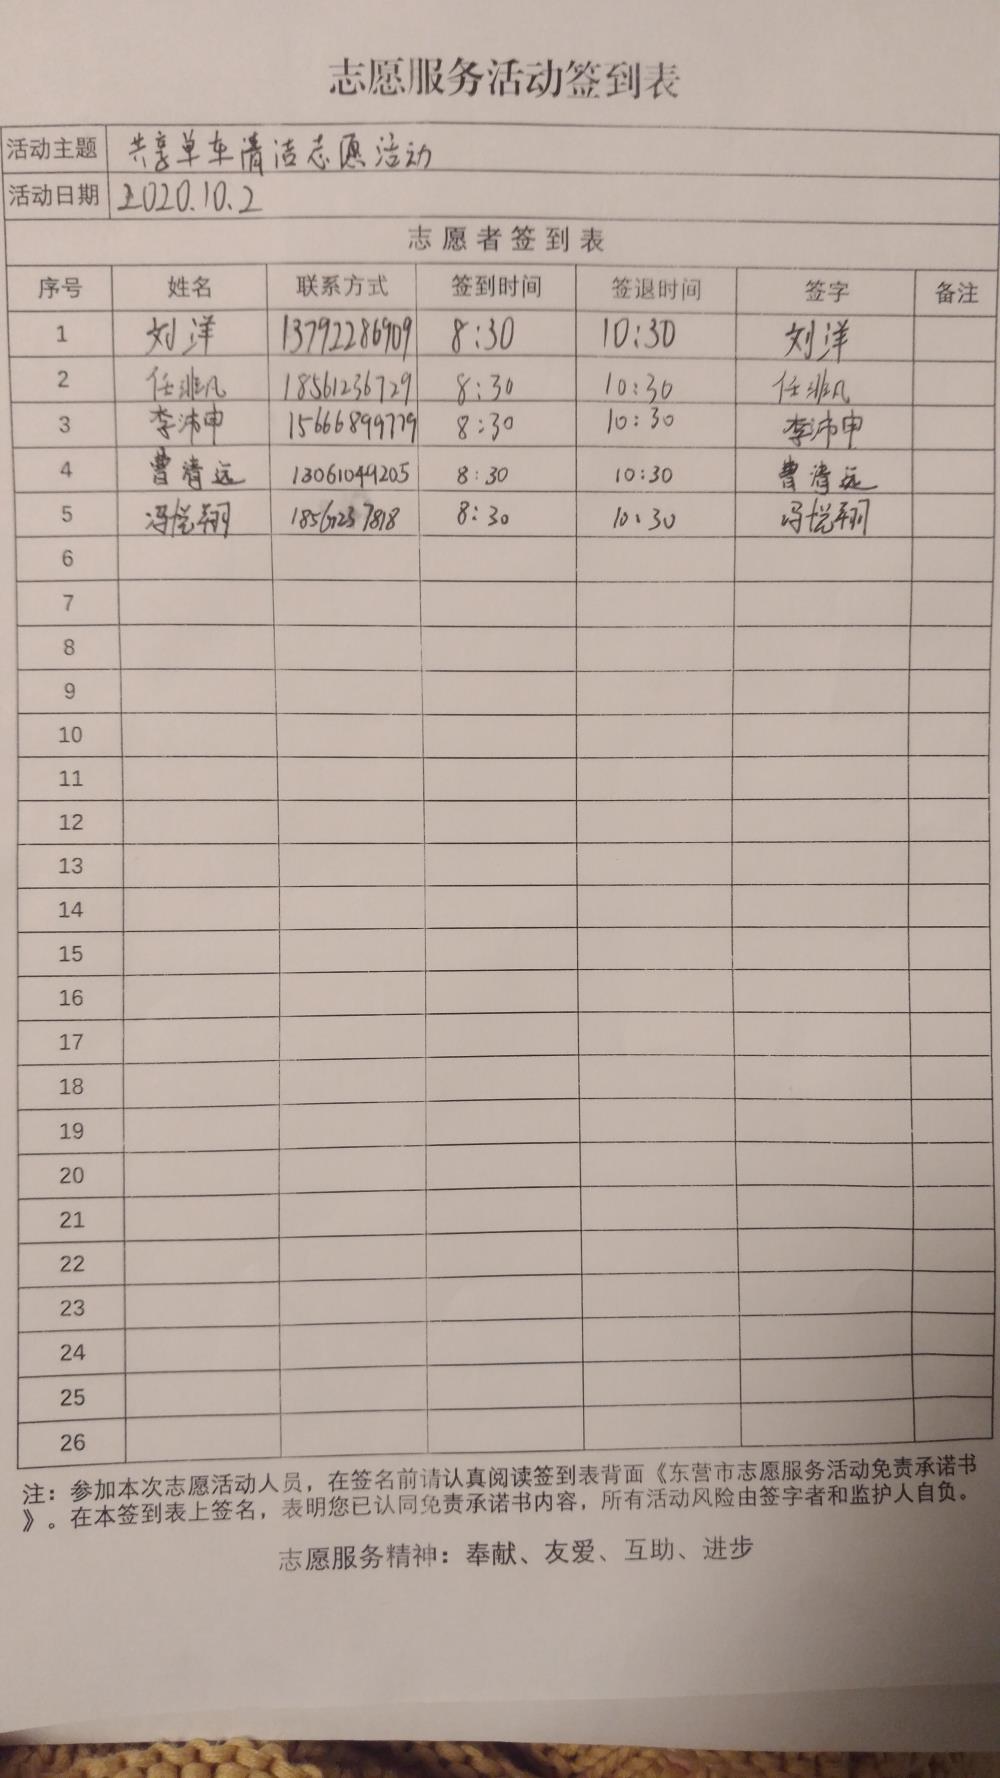 志愿服务活动签到表
活动主题 共享单车清洁志愿活动
活动日期 2020.10.2
志愿者签到表
序号 姓名 联系方式 签到时间 签退时间 签字 备注
1 刘洋 13792286909 8:30 10:30 刘洋
2 任非凡 18561236729 8:30 10:30 任非凡
3 李沛申 15666899779 8:30 10:30 李沛申
4 曹清远 13061049205 8:30 10:30 曹清远
5 冯悦翔 8:30 10:30 冯悦翔
6
7
8
9
10
11
12
13
14
15
16
17
18
19
20
21
22
23
24
25
26
注：参加本次志愿活动人员，在签名前请认真阅读签到表背面《东营市志愿服务活动免责承诺书
》。在本签到表上签名，表明您已认同免责承诺书内容，所有活动风险由签字者和监护人自负。
志愿服务精神：奉献、友爱、互助、进步